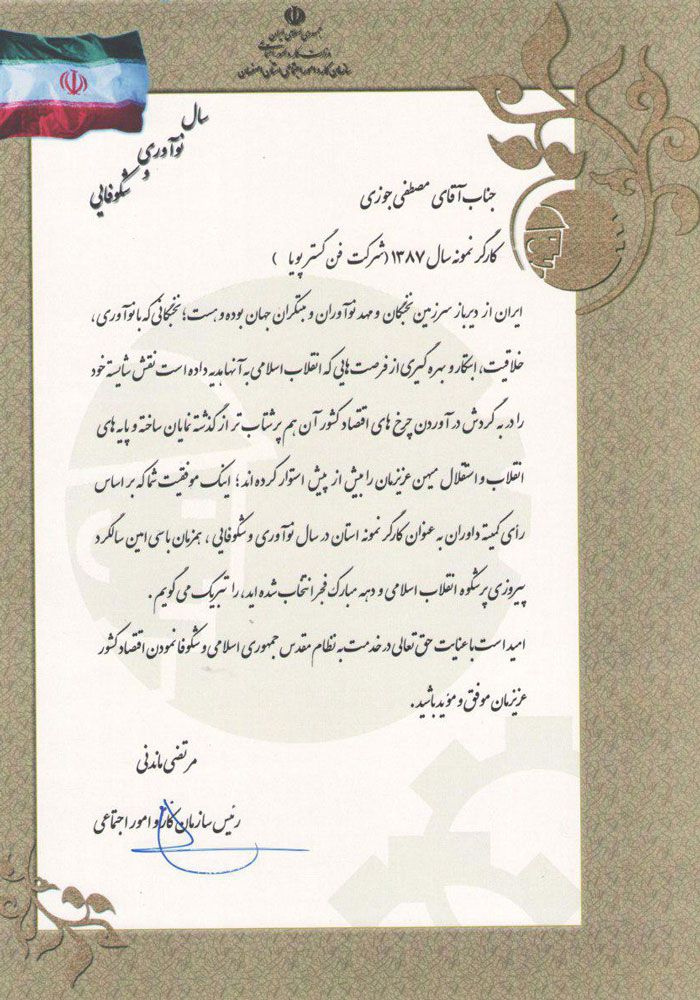 جمهوری اسلامی ایران
وزارت کار و امور اجتماعی
سازمان کار و امور اجتماعی استان اصفهان
سال
نوآوری
و
شکوفایی
جناب آقای مصطفی جوزی
کارگر نمونه سال ۱۳۸۷ (شرکت فن گستر پویا )
ایران از دیرباز سرزمین نخبگان و مهد نوآوران و مبتکران جهان بوده و هست؛ نخبگانی که با نوآوری،
خلاقیت، ابتکار و بهره گیری از فرصت هایی که انقلاب اسلامی به آنها هدیه داده است نقش شایسته خود
را در به گردش در آوردن چرخ های اقتصاد کشور آن هم پرشتاب تر از گذشته نمایان ساخته و پایه های
انقلاب و استقلال میهن عزیزمان را بیش از پیش استوار کرده اند؛ اینک موفقیت شما که بر اساس
رأی کمیته داوران به عنوان کارگر نمونه استان در سال نوآوری و شکوفایی ، همزمان با سی امین سالگرد
پیروزی پرشکوه انقلاب اسلامی و دهه مبارک فجر انتخاب شده اید، را تبریک می گویم .
امید است با عنایت حق تعالی در خدمت به نظام مقدس جمهوری اسلامی و شکوفا نمودن اقتصاد کشور
عزیزمان موفق و مؤید باشید .
مرتضی ماندنی
رئیس سازمان کار و امور اجتماعی